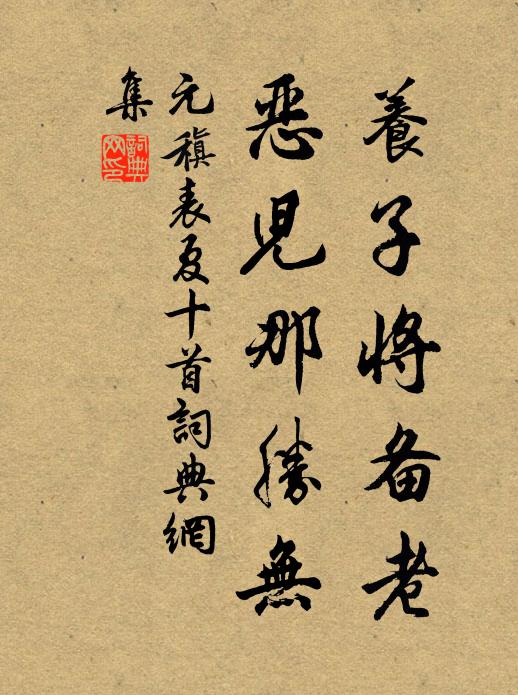 養子將备老
惡兒那勝無
元稹表夏十首詞典網
集
詞典
网印